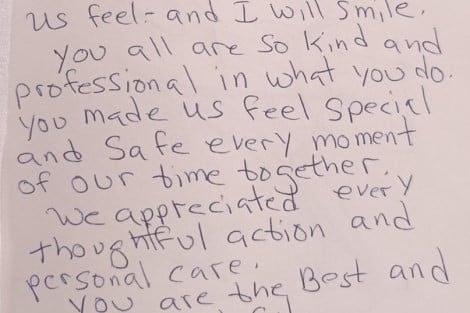 us feel - and I will smile.
You all are so kind and
professional in what you do.
You made us feel special
and safe every moment
of our time together.
We appreciated every
thoughtful action and
personal care.
You are the Best and